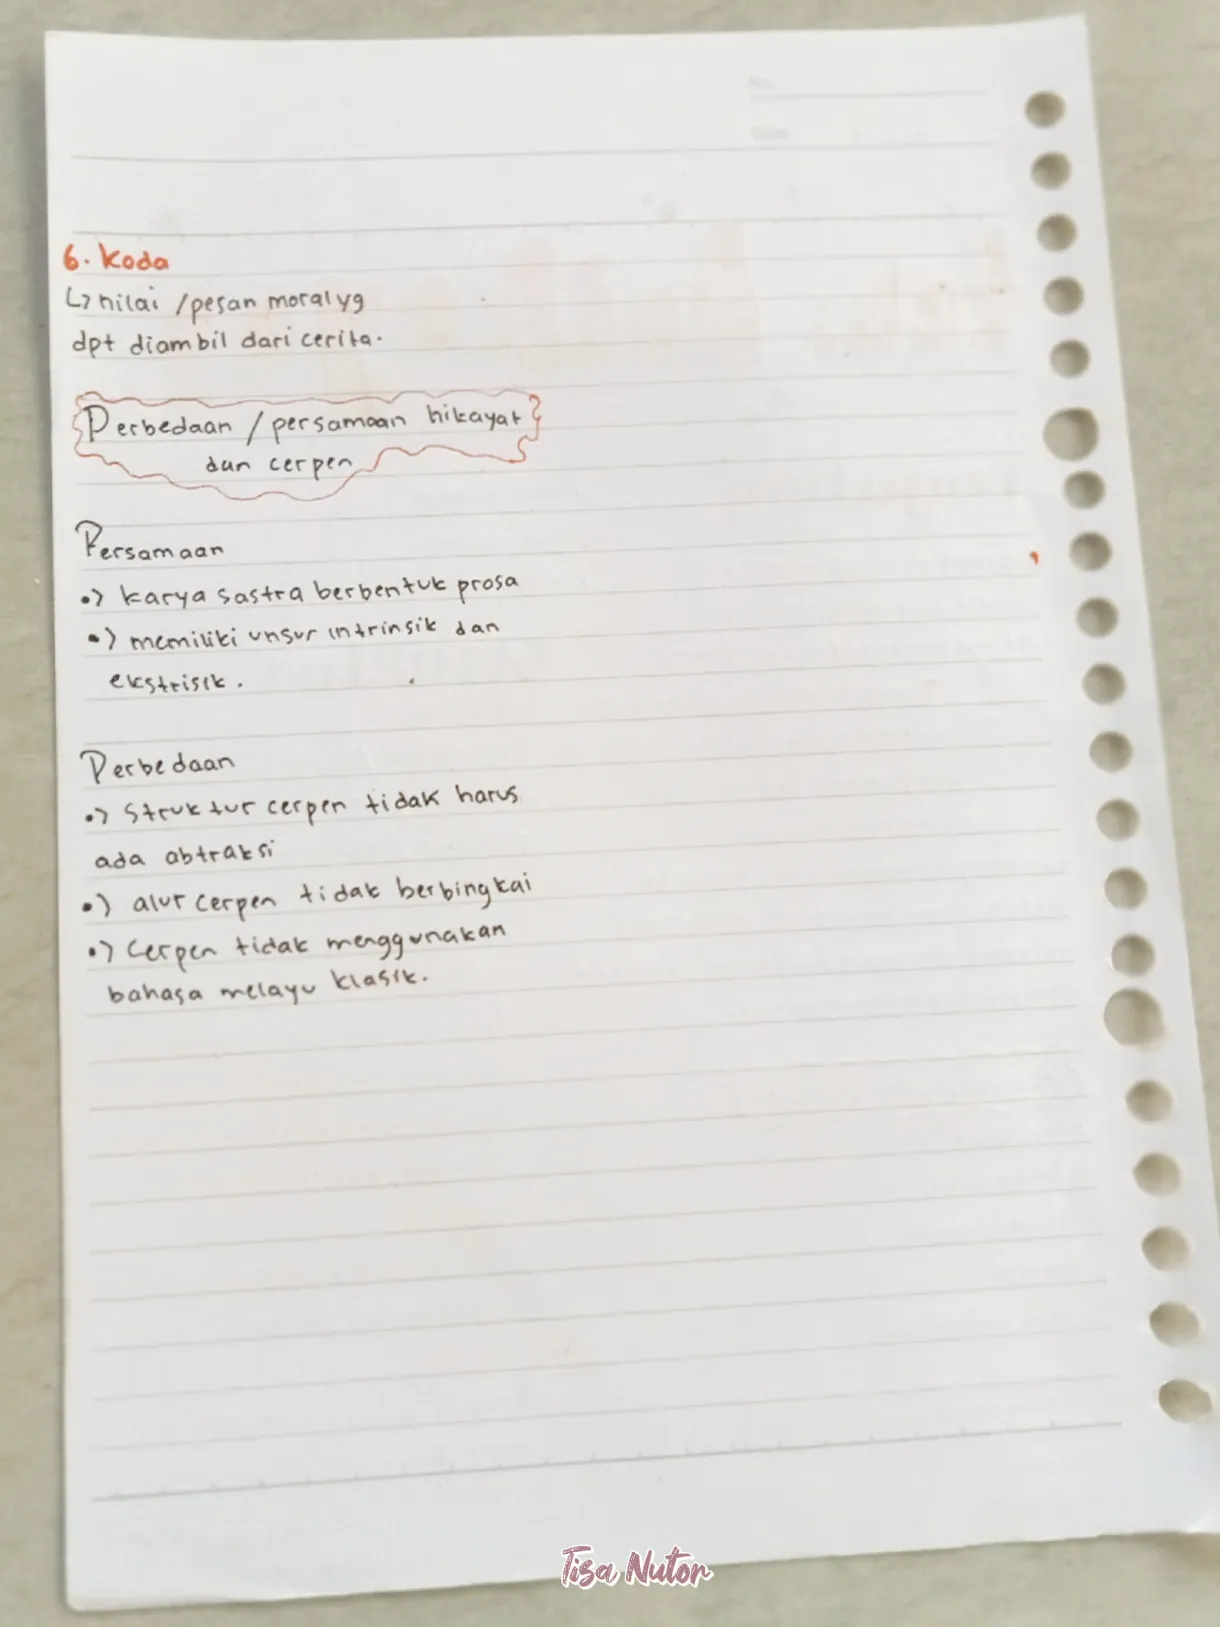 No.
Date
6. Koda
↳ nilai / pesan moral yg
dpt diambil dari cerita.
Perbedaan / persamaan hikayat
dan cerpen
Persamaan
•> karya sastra berbentuk prosa
•> memiliki unsur intrinsik dan
ekstrisik.
Perbedaan
•> Struktur cerpen tidak harus
ada abtraksi
•> alur cerpen tidak berbingkai
•> Cerpen tidak menggunakan
bahasa melayu klasik.
Tisa Nutor